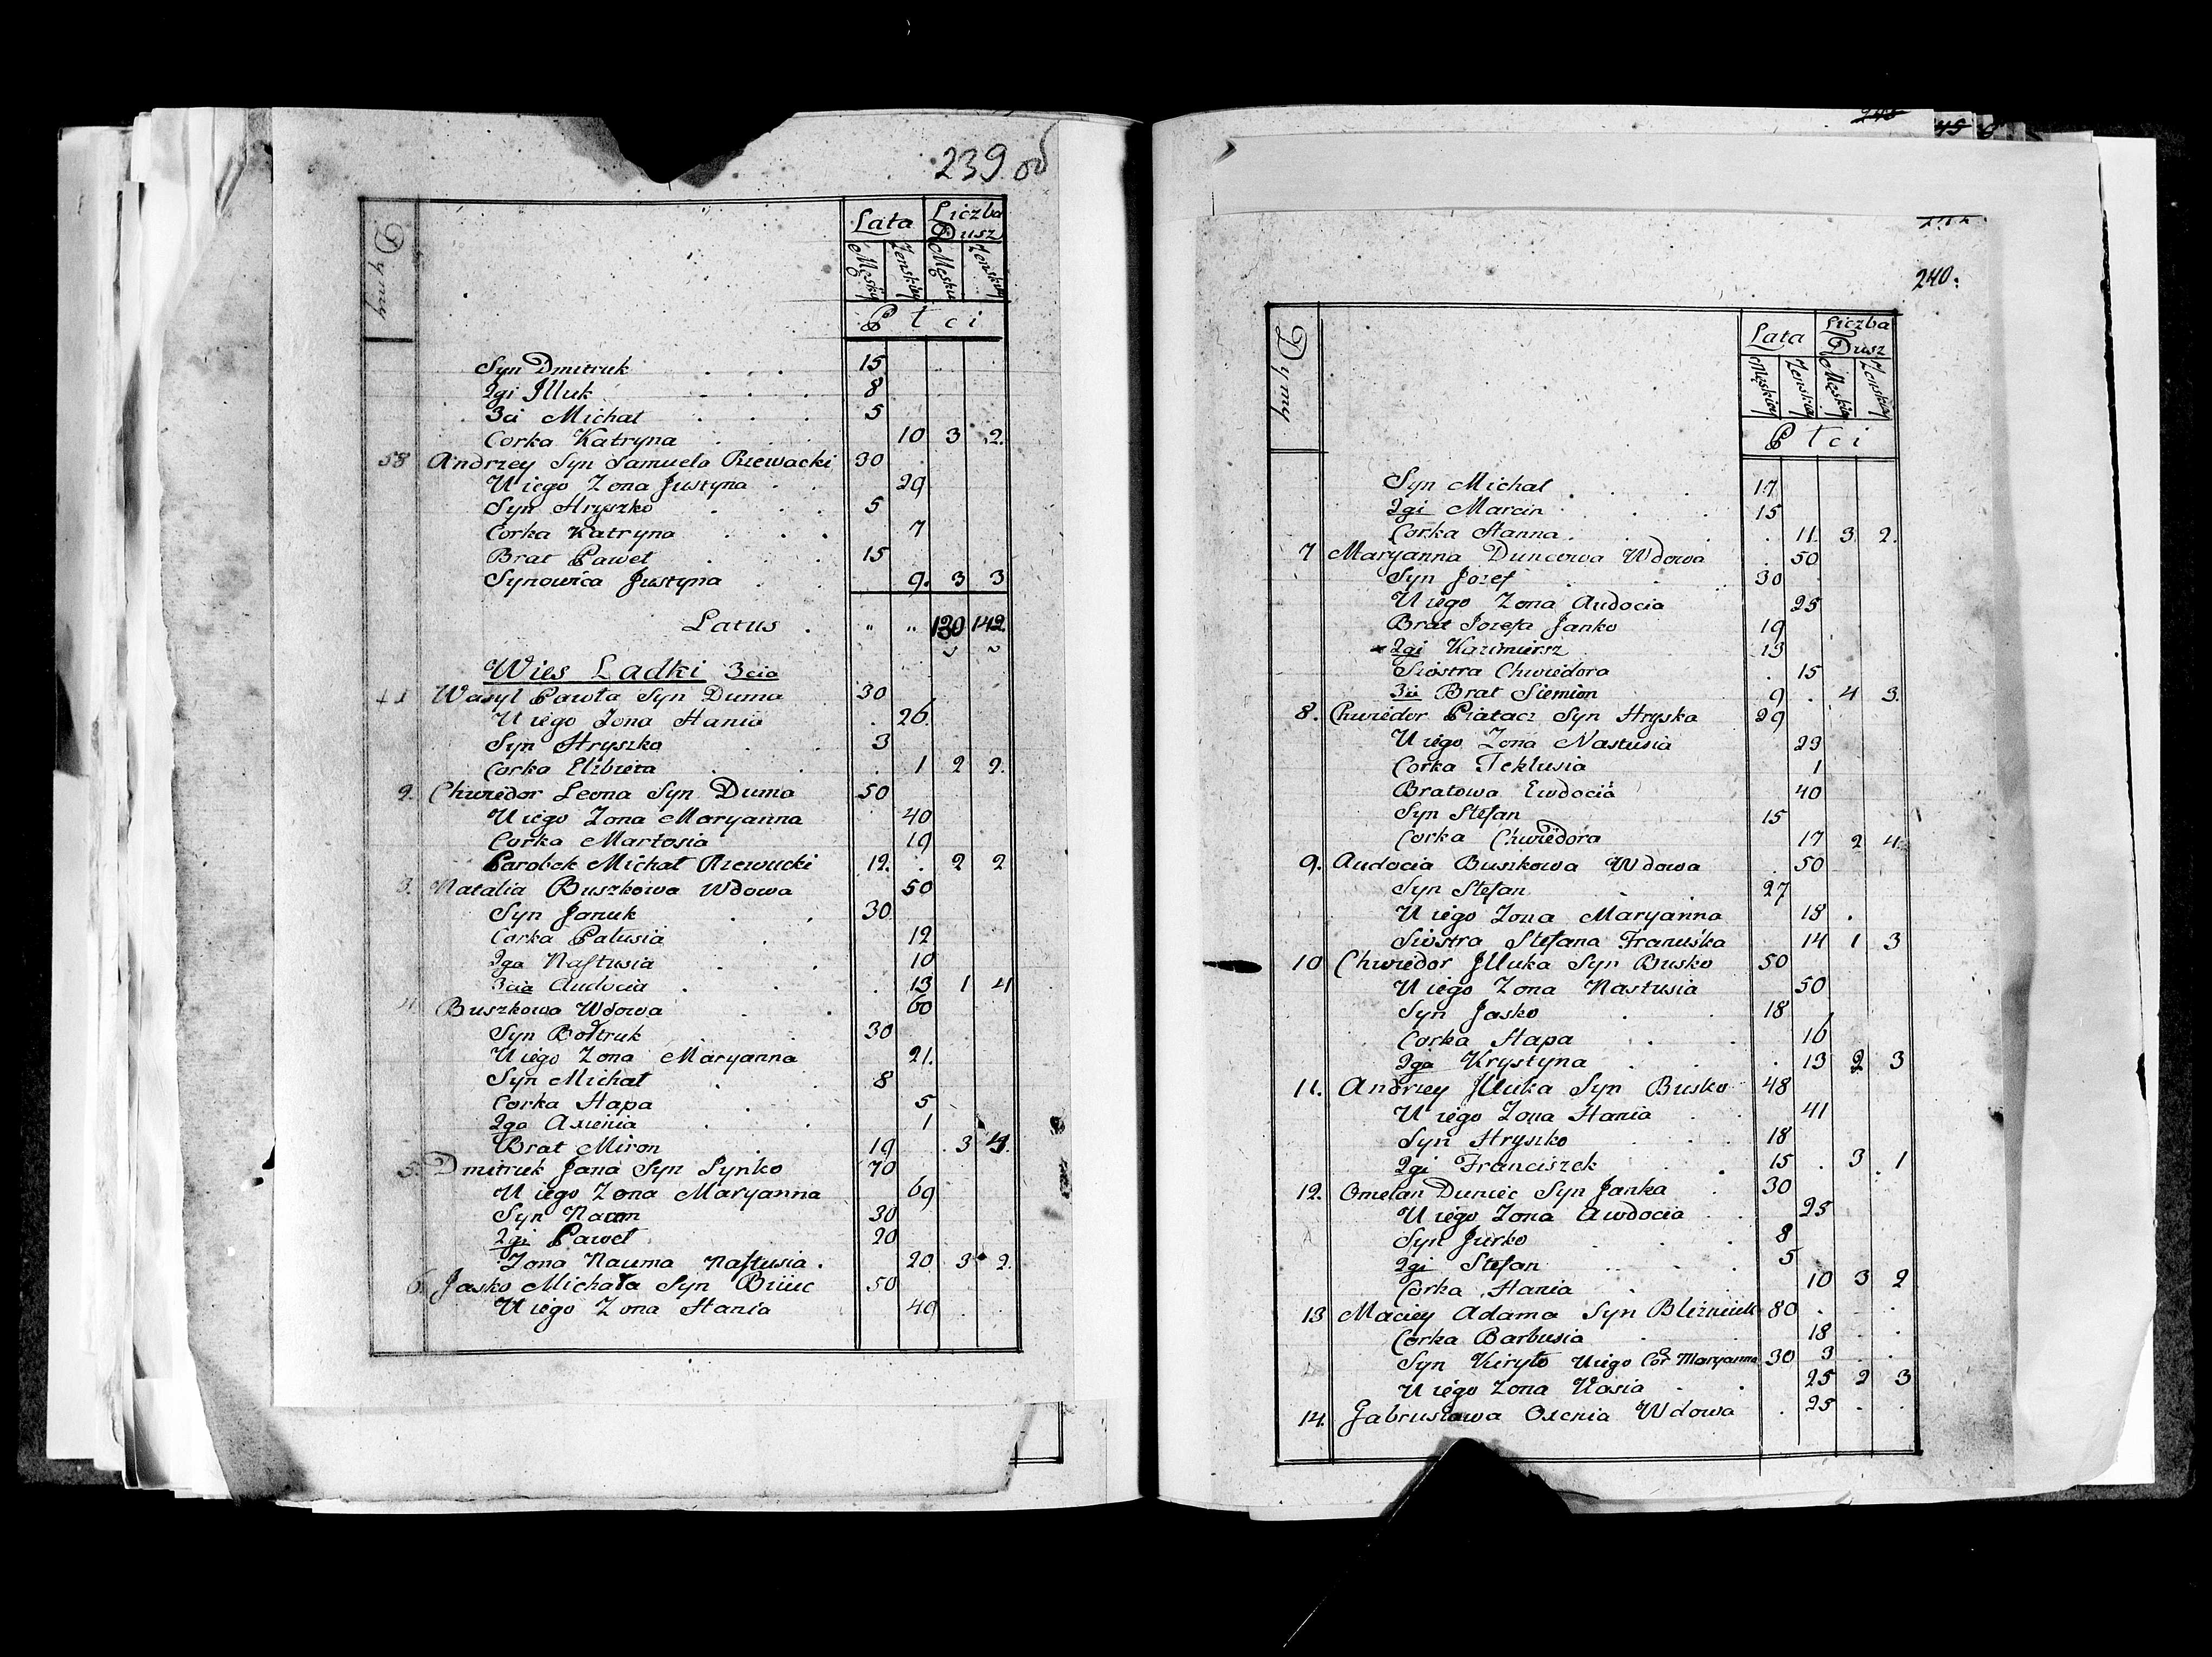 239 об
Dymy
Lata
Liczba Dusz
Męskiey Zenskiey Męskiey Zenskiey
Płci
Syn Dmitruk 15
2gi Illuk 8
3ci Michał 5
Corka Katryna 10 3 2.
58 Andrzey Syn Samuela Rzewacki 30
U iego Zona Justyna 29
Syn Hryszko 5
Corka Katryna 7
Brat Paweł 15
Synowica Justyna 9. 3 3
Latus . " " 130 142.
Wies Ladki 3cia
1 Wasyl Pawła Syn Duma 30
U iego Zona Hania 26.
Syn Hryszko 3
Corka Elzbieta 1 2 2.
2. Chwiedor Leona Syn Duma 50
U iego Zona Maryanna 40
Corka Martosia 19
Parobek Michał Rzewucki 12. 2 2
3. Natalia Buszkowa Wdowa 50
Syn Januk 30
Corka Palusia 12
2ga Nastusia 10
3cia Audocia 13 1 4
4. Buszkowa Wdowa 60
Syn Bołtruk 30
U iego Zona Maryanna 21.
Syn Michał 8
Corka Hapa 5
2ga Axienia 1
Brat Miron 19 3 4.
5. Dmitruk Jana Syn Synko 70
U iego Zona Maryanna 69
Syn Naum 30
2gi Paweł 20
Zona Nauma Nastusia. 20 3 2.
6. Jasko Michała Syn 50
U iego Zona Hania 40
240.
Dymy
Lata
Liczba Dusz
Męskiey Zenskiey Męskiey Zenskiey
Płci
Syn Michał 17
2gi Marcin 15
Corka Hanna 11. 3. 2.
7 Maryanna Duncowa Wdowa 50
Syn Jozef 30
U iego Zona Audocia 25
Brat Jozefa Janko 19
2gi Kazimiersz 13
Siostra Chwiedora 15
3ci Brat Siemion 9 4 3.
8. Chwiedor Piatacz Syn Hryska 29
U iego Zona Nastusia 23
Corka Teklusia 1
Bratowa Ewdocia 40
Syn Stefan 15
Corka Chwiedora 17 2 4
9. Audocia Buszkowa Wdowa 50
Syn Stefan 27
U iego Zona Maryanna 18
Siostra Stefana Franuśka 14 1 3
10 Chwiedor Illuka Syn Busko 50
U iego Zona Nastusia 50
Syn Jasko 18
Corka Hapa 16
2ga Krystyna 13 2 3
11. Andrzey Illuka Syn Busko 48
U iego Zona Hania 41
Syn Hryszko 18
2gi Franciszek 15 3 1
12. Omelan Duniec Syn Janka 30
U iego Zona Awdocia 25
Syn Jurko 8
2gi Stefan 5
Corka Hania 10 3 2
13 Maciey Adama Syn 80
Corka Barbusia 18
Syn Kiryło Uiego Cor Maryanna 30 3
U iego Zona Kasia 25 2 3
14. Gabrusiowa Oxenia Wdowa 25